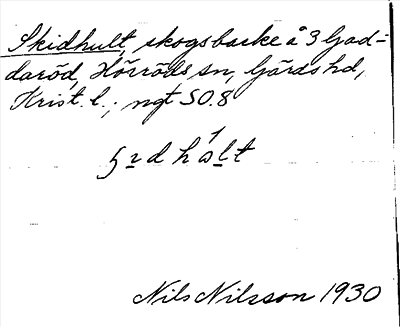 Skidhult, skogsbacke å 3 Gad-
daröd, Hörröds sn, Gärds hd,
Krist. l.; ngt SO. 8
Nils Nilsson 1930